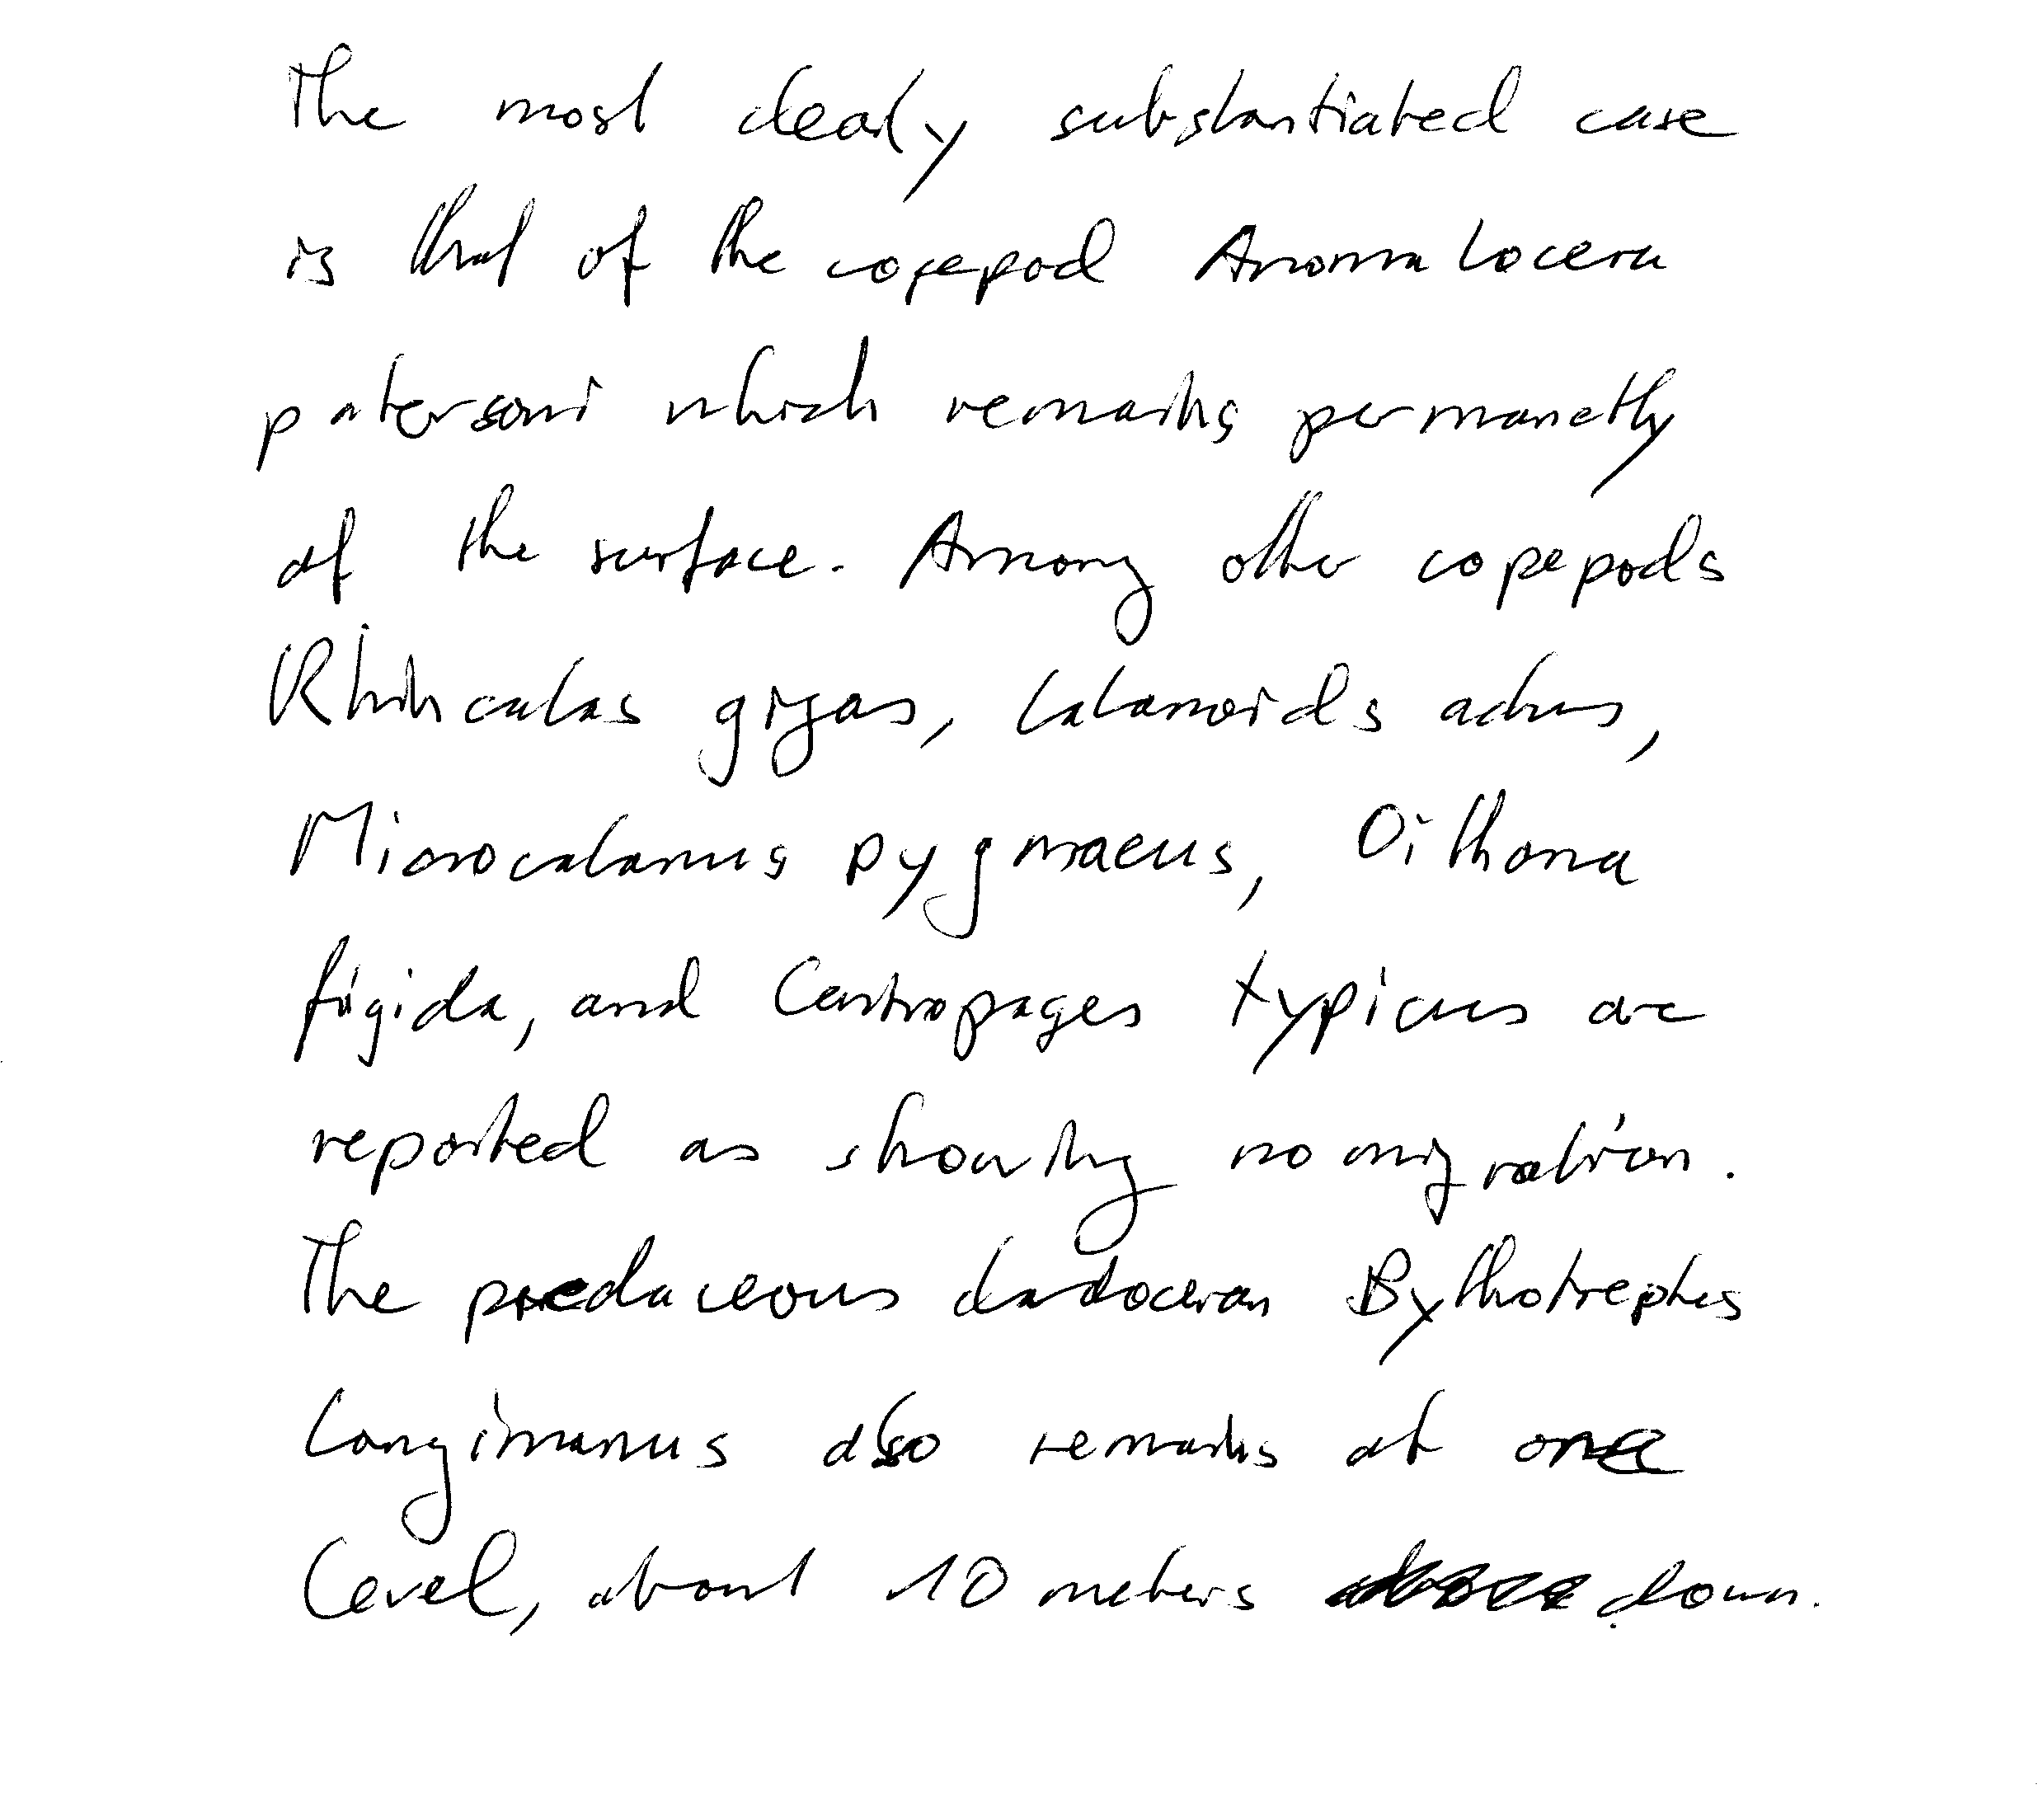 The most clearly substantiated case
is that of the copepod Anomalocera
patersoni which remains permanetly
at the surface. Among other copepods
Rhincalas gigas, Calanoids acutus,
Microcalanus pygmaeus, Oithona
frigida, and Centropages typicus are
reported as showing no migration.
The predaceous cladoceran Bythotrephes
longimanus also remains at one
level, about 10 meters down.